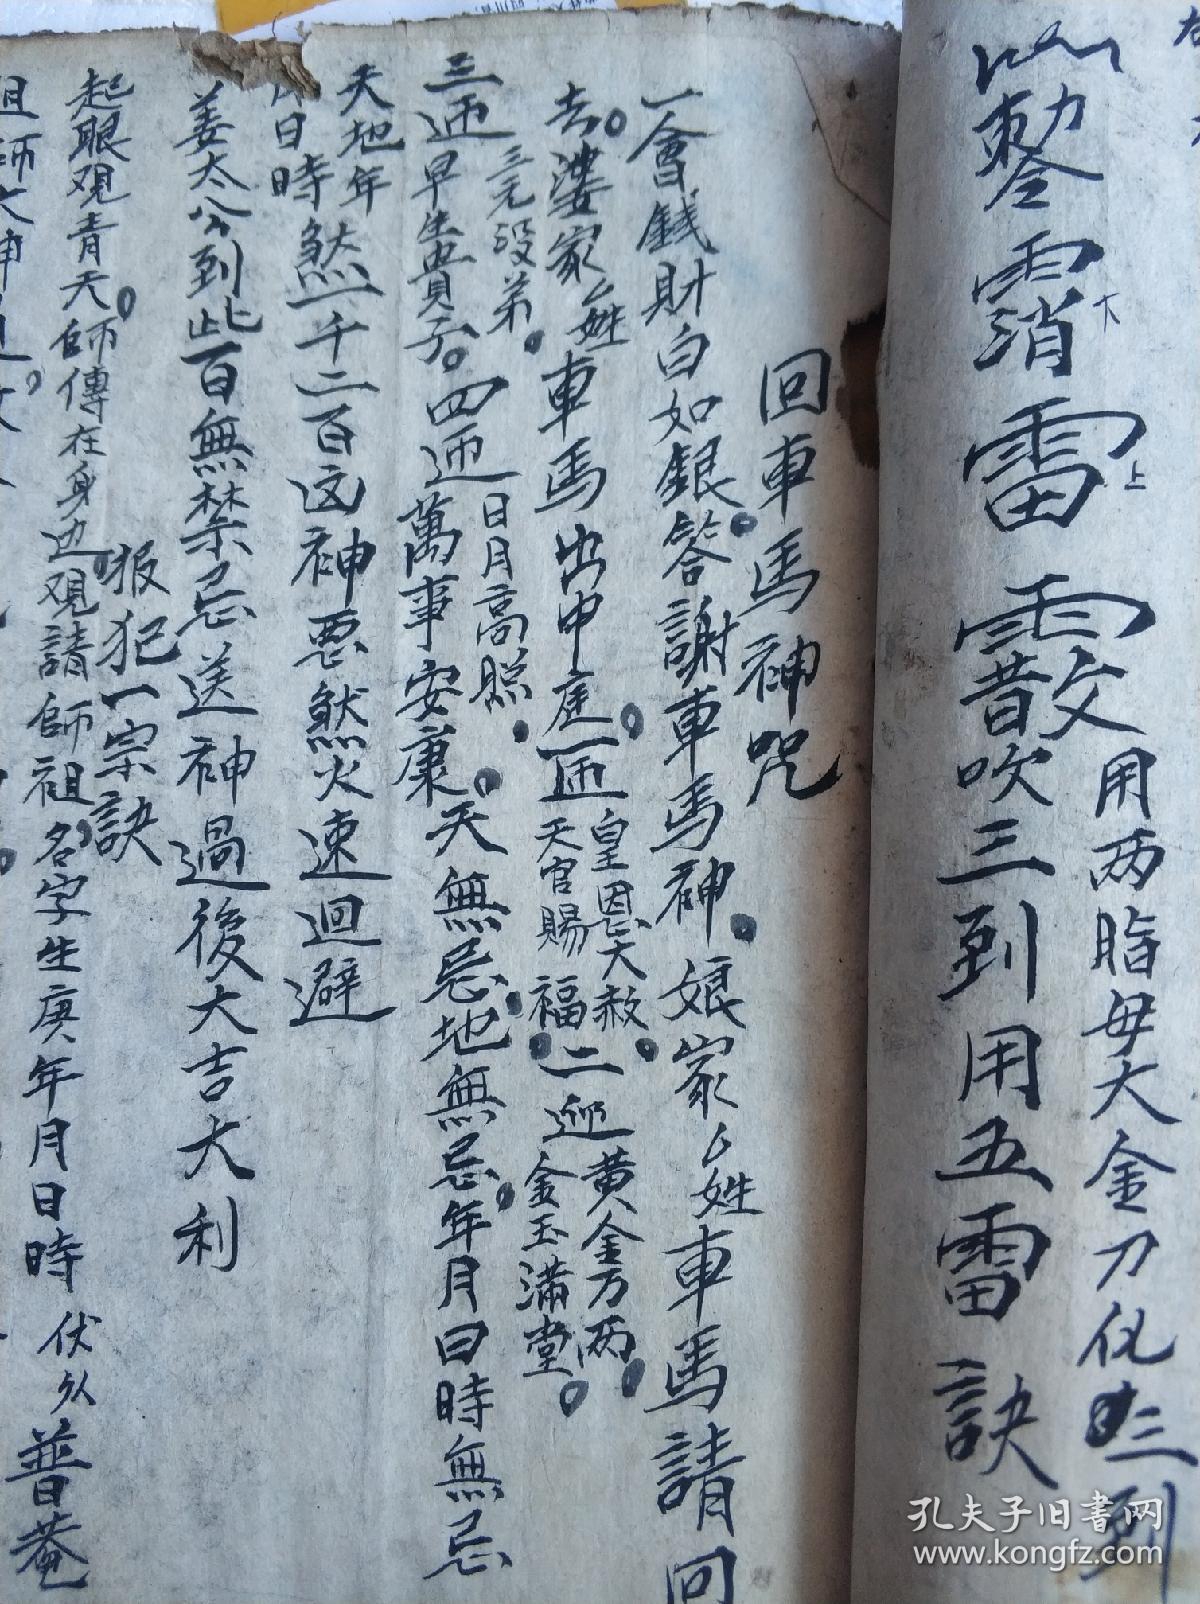 用两脂毋大金刀化三到
雷
吹三到用五雷訣
大
上
回車馬神咒
一會錢財白如銀。答謝車馬神。娘家厶姓車馬請回
去。婆家厶姓車馬出中庭。一迊皇恩大赦。天官賜福。二迊黄金万两。金玉满堂。
三迊早生貴子。三元及弟。四迊日月高照。萬事安康。天無忌。地無忌。年月日時無忌
天地年月日時煞一千二百凶神恶煞火速迴避
姜太公到此百無禁忌送神過後大吉大利
報犯一宗訣
起眼观青天。師傅在身边。观請師祖名字生庚年月日時伏以普菴
祖師大
孔夫子旧书网
www.kongfz.com